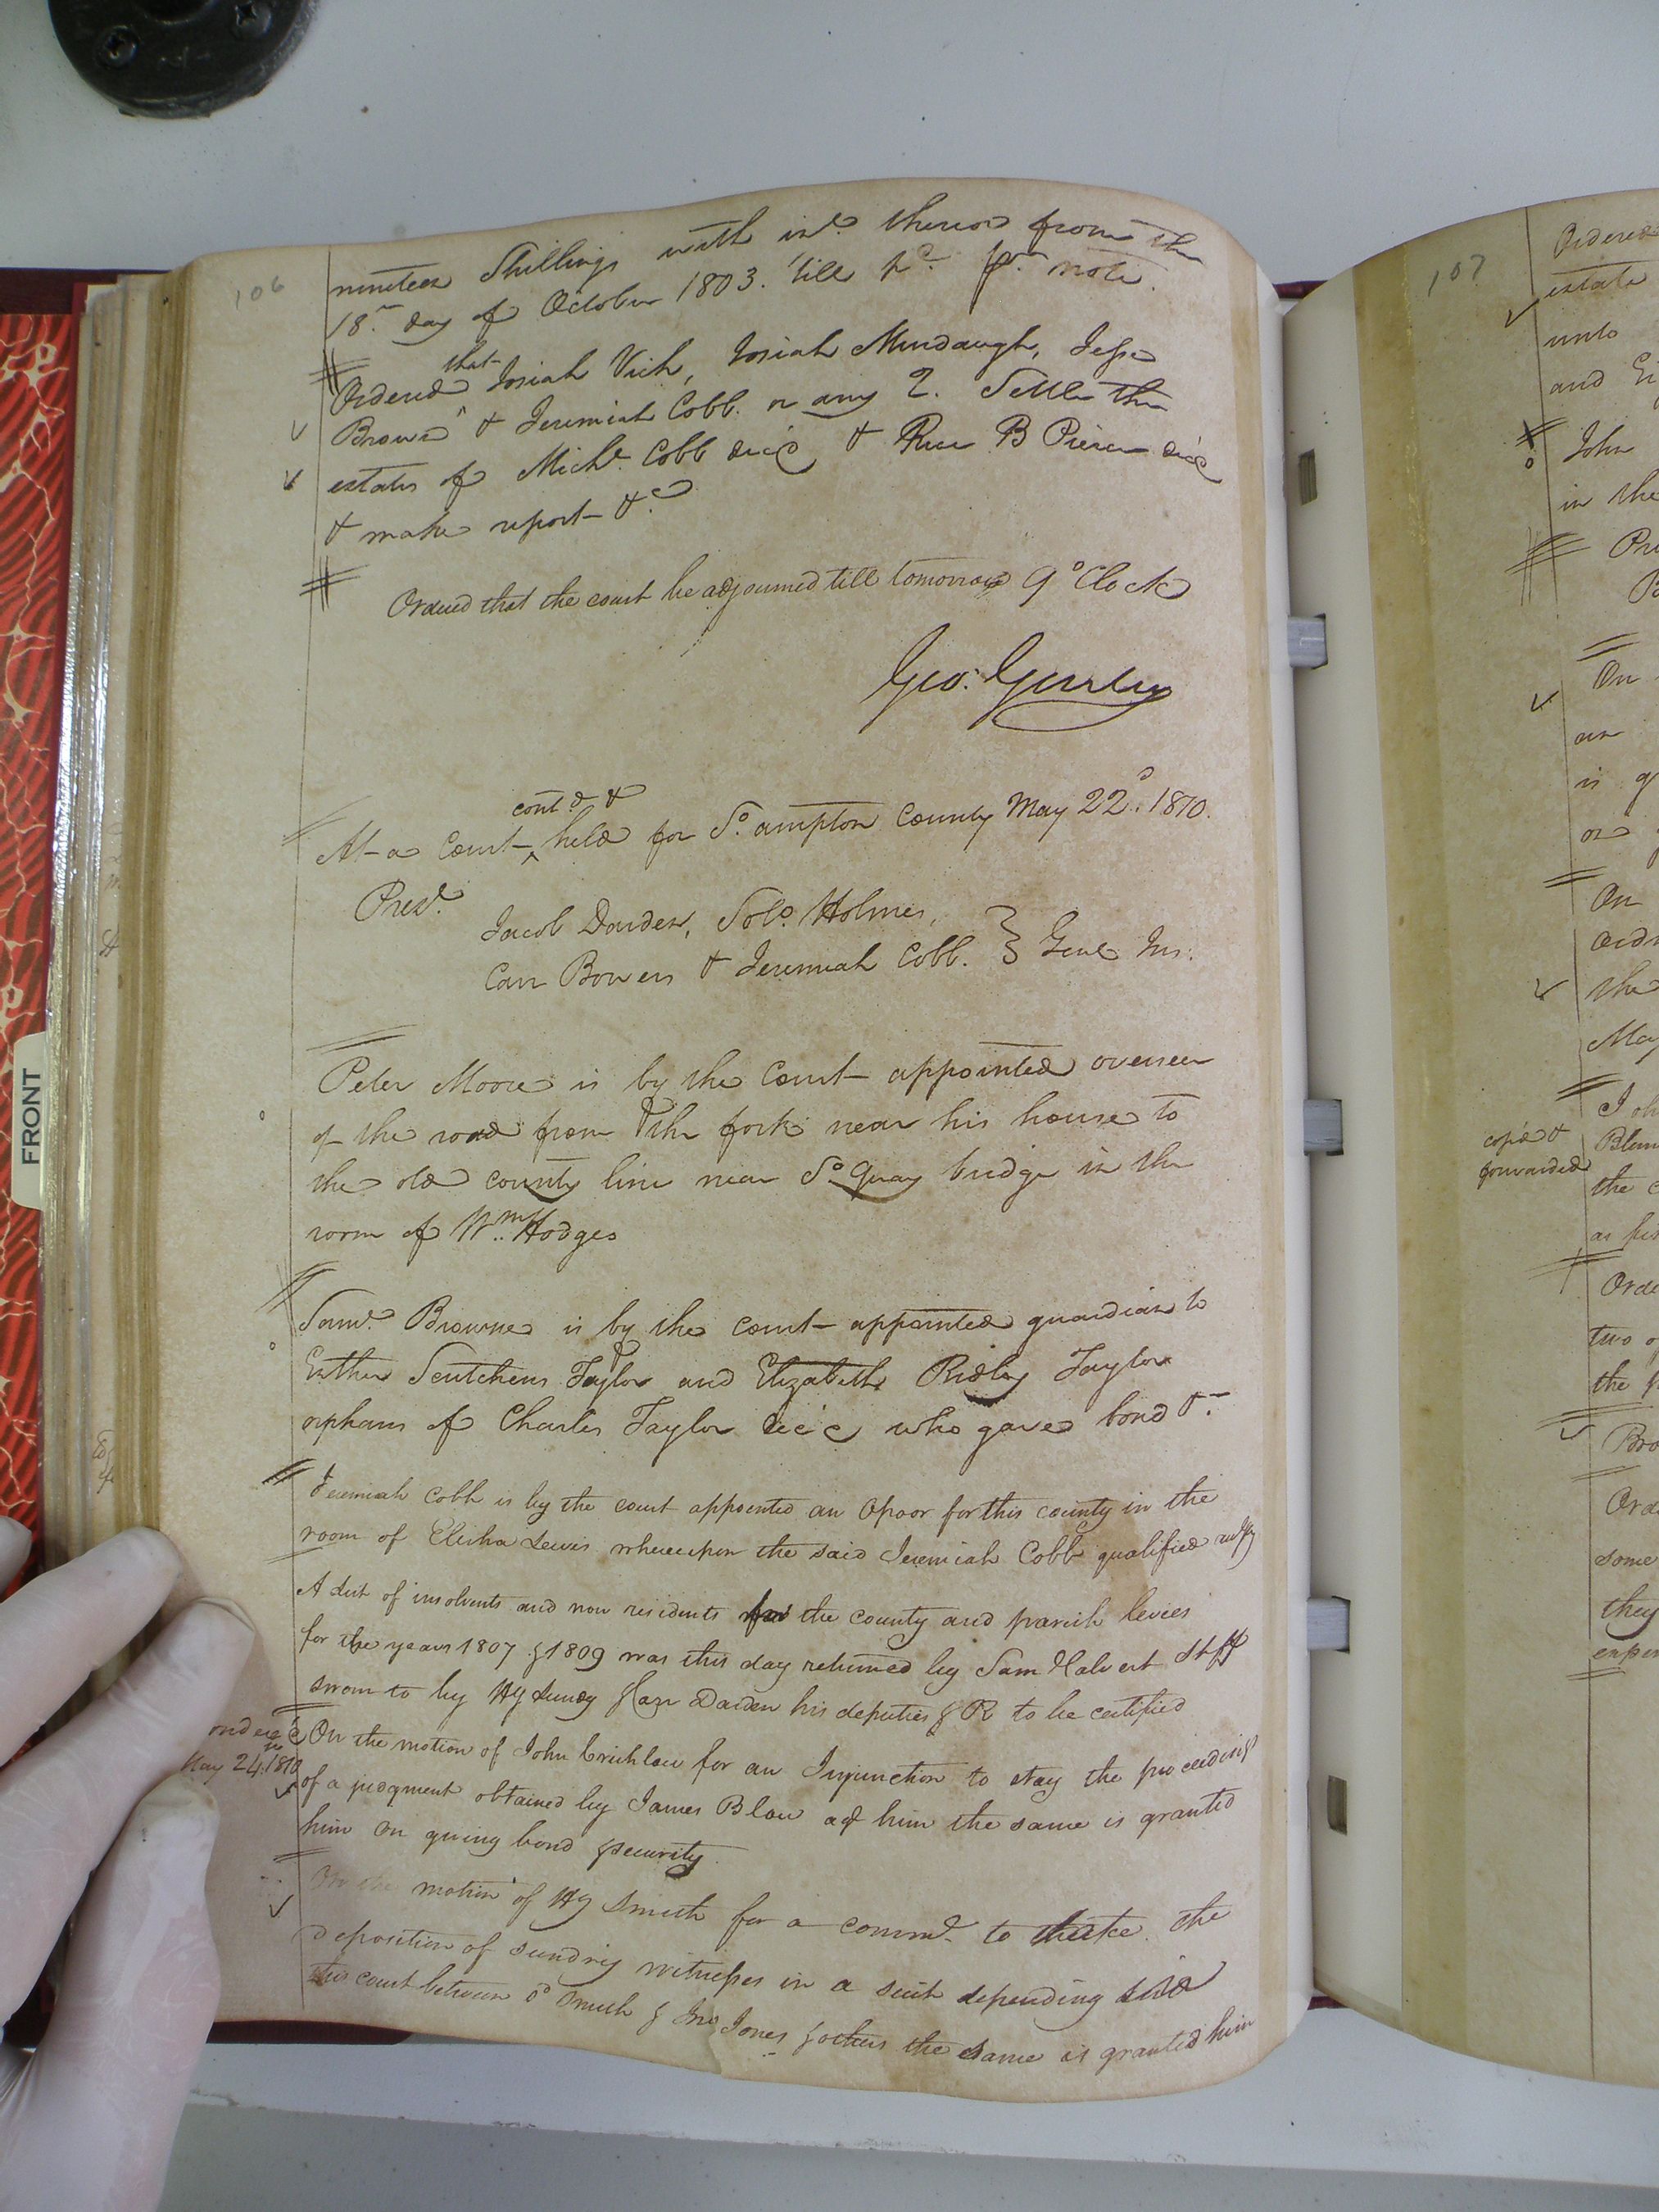 106
nineteen Shillings with int. thereon from the
18th day of October 1803. till pd. pr. note.
Ordered that Josiah Vick, Josiah Murdaugh, Jesse
Browne & Jeremiah Cobb. or any 2. Settle the
estates of Michl. Cobb dec'd & Rice B Pierce dec'd
& make report &c
Ordered that the court be adjourned till tomorrow 9 oClock
Geo. Gurley
contd. &
At a Court held for So.ampton County May 22d. 1810.
Prest.
Jacob Darden, Solo. Holmes,
Carr Bowers & Jeremiah Cobb. } Gent Jus:
Peter Moore is by the Court appointed overseer
of the road from the fork near his house to
the old county line near So. Quay bridge in the
room of Wm. Hodges
Saml. Browne is by the court appointed guardian to
Esther Scutchens Taylor and Elizabeth Ridley Taylor
orphans of Charles Taylor dec'd who gave bond &c
Jeremiah Cobb is by the court appointed an Opoor for this county in the
room of Elisha Lewis whereupon the said Jeremiah Cobb qualified
A list of insolvents and non residents for the county and parish levies
for the years 1807 & 1809 was this day returned by Sam Calvert Shff
sworn to by Hy Lundy & Carr Darden his deputies & R to be certified
May 24. 1810
On the motion of John Crichlow for an Injunction to stay the proceedings
of a judgment obtained by James Blow agt him the same is granted
him on giving bond & security.
On the motion of Hy Smith for a commn. to take the
deposition of sundry witnesses in a suit depending in
this court between sd Smith & Jno Jones & others the same is granted him
107
Ordered
estate
unto
and
John
in the
On
an
is
or
On
the
May
cop'd &
forwarded
the
as
Orde
two of
the
some
they